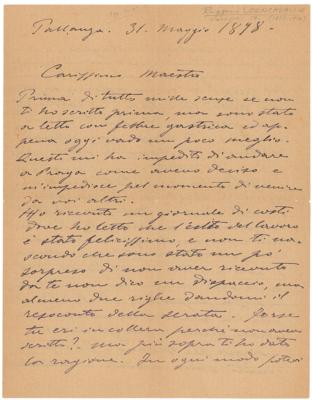 Ruggero LEONCAVALLO
Pallanza. 31. Maggio 1898.
Carissimo Maestro
Prima di tutto mille scuse se non
ti ho scritto prima, ma sono stato
a letto con febbre gastrica ed ap-
pena oggi vado un poco meglio.
Questo mi ha impedito di andare
a Praga come avevo deciso e
m'impedisce pel momento di venire
da voi altri.
Ho ricevuto un giornale di costì
dove ho letto che l'esito del lavoro
è stato felicissimo, e non ti na-
scondo che sono stato un po'
sorpreso di non aver ricevuto
da te non dico un dispaccio, ma
almeno due righe dandomi il
resoconto della serata. Forse
tu eri in collera perchè non avevo
scritto? ma più sopra ti ho dato
la ragione. In ogni modo potevi